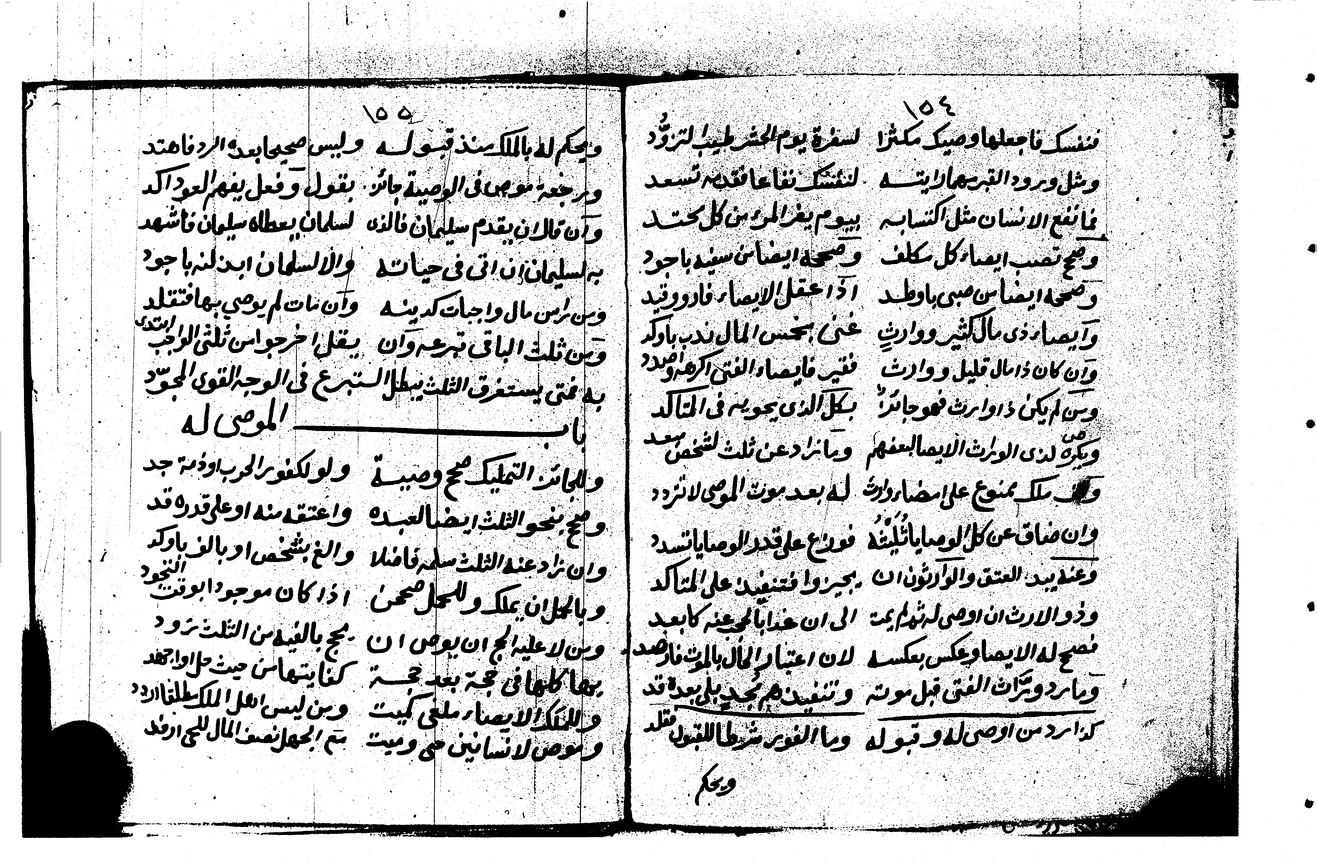 ١٥٤
فنفسك فاجعلها وصيك مكثرا لسفرة يوم الحشر طيب التزود
ومثل ورود القبر مهما رايته لنفسك نفاعا فقدمه تسعد
فما نفع الانسان مثل اكتسابه بيوم يفر المرء من كل محتد
وصحح تصب ايصاء كل مكلف وصححه ايضا من سفيه باجود
وصححه ايضا من صبي باوطد اذا عقل الايصاء فاروو قيد
وايصاء ذي مال كثير ووارث غني بخمس المال ندب باوكد
وان كان ذا مال قليل ووارث فقير فايصاء الفتى اكرهه واصدد
ومن لم يكن ذا وارث فهو جائز بكل الذي يحويه في المتاكد
ويكره لذي الوراث الايصا لبعضهم وما زاد عن ثلث لشخص مبعد
ملك ممنوع على امضاء وارث له بعد موت الموصي لا تزدد
وان ضاق عن كل الوصايا ثليثه فوزع على قدر الوصايا تسدد
وعنه يبد العتق والوارثون ان يجيزوا فتنفيذ على المتاكد
وذو الارث ان اوصى له ثم لم يمت الى ان غدا بالحجب عنه كابعد
فصحح له الايصا وعكس بعكسه لان اعتبار الحال بالموت فارصد
وما رد وراث الفتى قبل موته وتنفيذهم مجد بلى بعده قد
كذا رد من اوصى له وقبوله وما الفور شرطا للقبول فقلد
ويحكم
١٥٥
ويحكم له بالملك منذ قبوله وليس صحيحا بعده الرد فاهتد
ورجعة موص في الوصية جائز بقول وفعل يفهم العود اكد
وان قال ان يقدم سليمان فالذي لسلمان يعطاه سليمان فاشهد
به لسليمان ان اتى في حياته والا لسلمان ابذلنه باجود
ومن راس مال واجبات كدينه وان مات لم يوصي بها فتقلد
ومن ثلث الباقي تبرعه وان يقل اخرجوا من ثلثي الواجب ابتدي
به فمتى يستغرق الثلث يبطل التبرع في الوجه القوي المجود
باب الموصى له
وللجائز التمليك صحح وصية ولو لكفور الحرب او ذمة جد
وصحح بنحو الثلث ايضا لعبده واعتقه منه او على قدره قد
وان زاد عنه الثلث سلمه فاضلا والغ بشخص او بالف باوكد
وبالحمل ان يملك وللحمل صححن اذا كان موجودا بوقت التجود
ومن لا عليه الحج ان يوص ان يحج بالفيه من الثلث تزود
بها كلها في حجة بعد حجة كفايتها من حيث حل او اجهد
وللملك الايصاء ملغى كميت ومن ليس اهل الملك مطلقا اردد
وموص لانسانين حي وميت مع الجهل نصف المال للحي ارفد